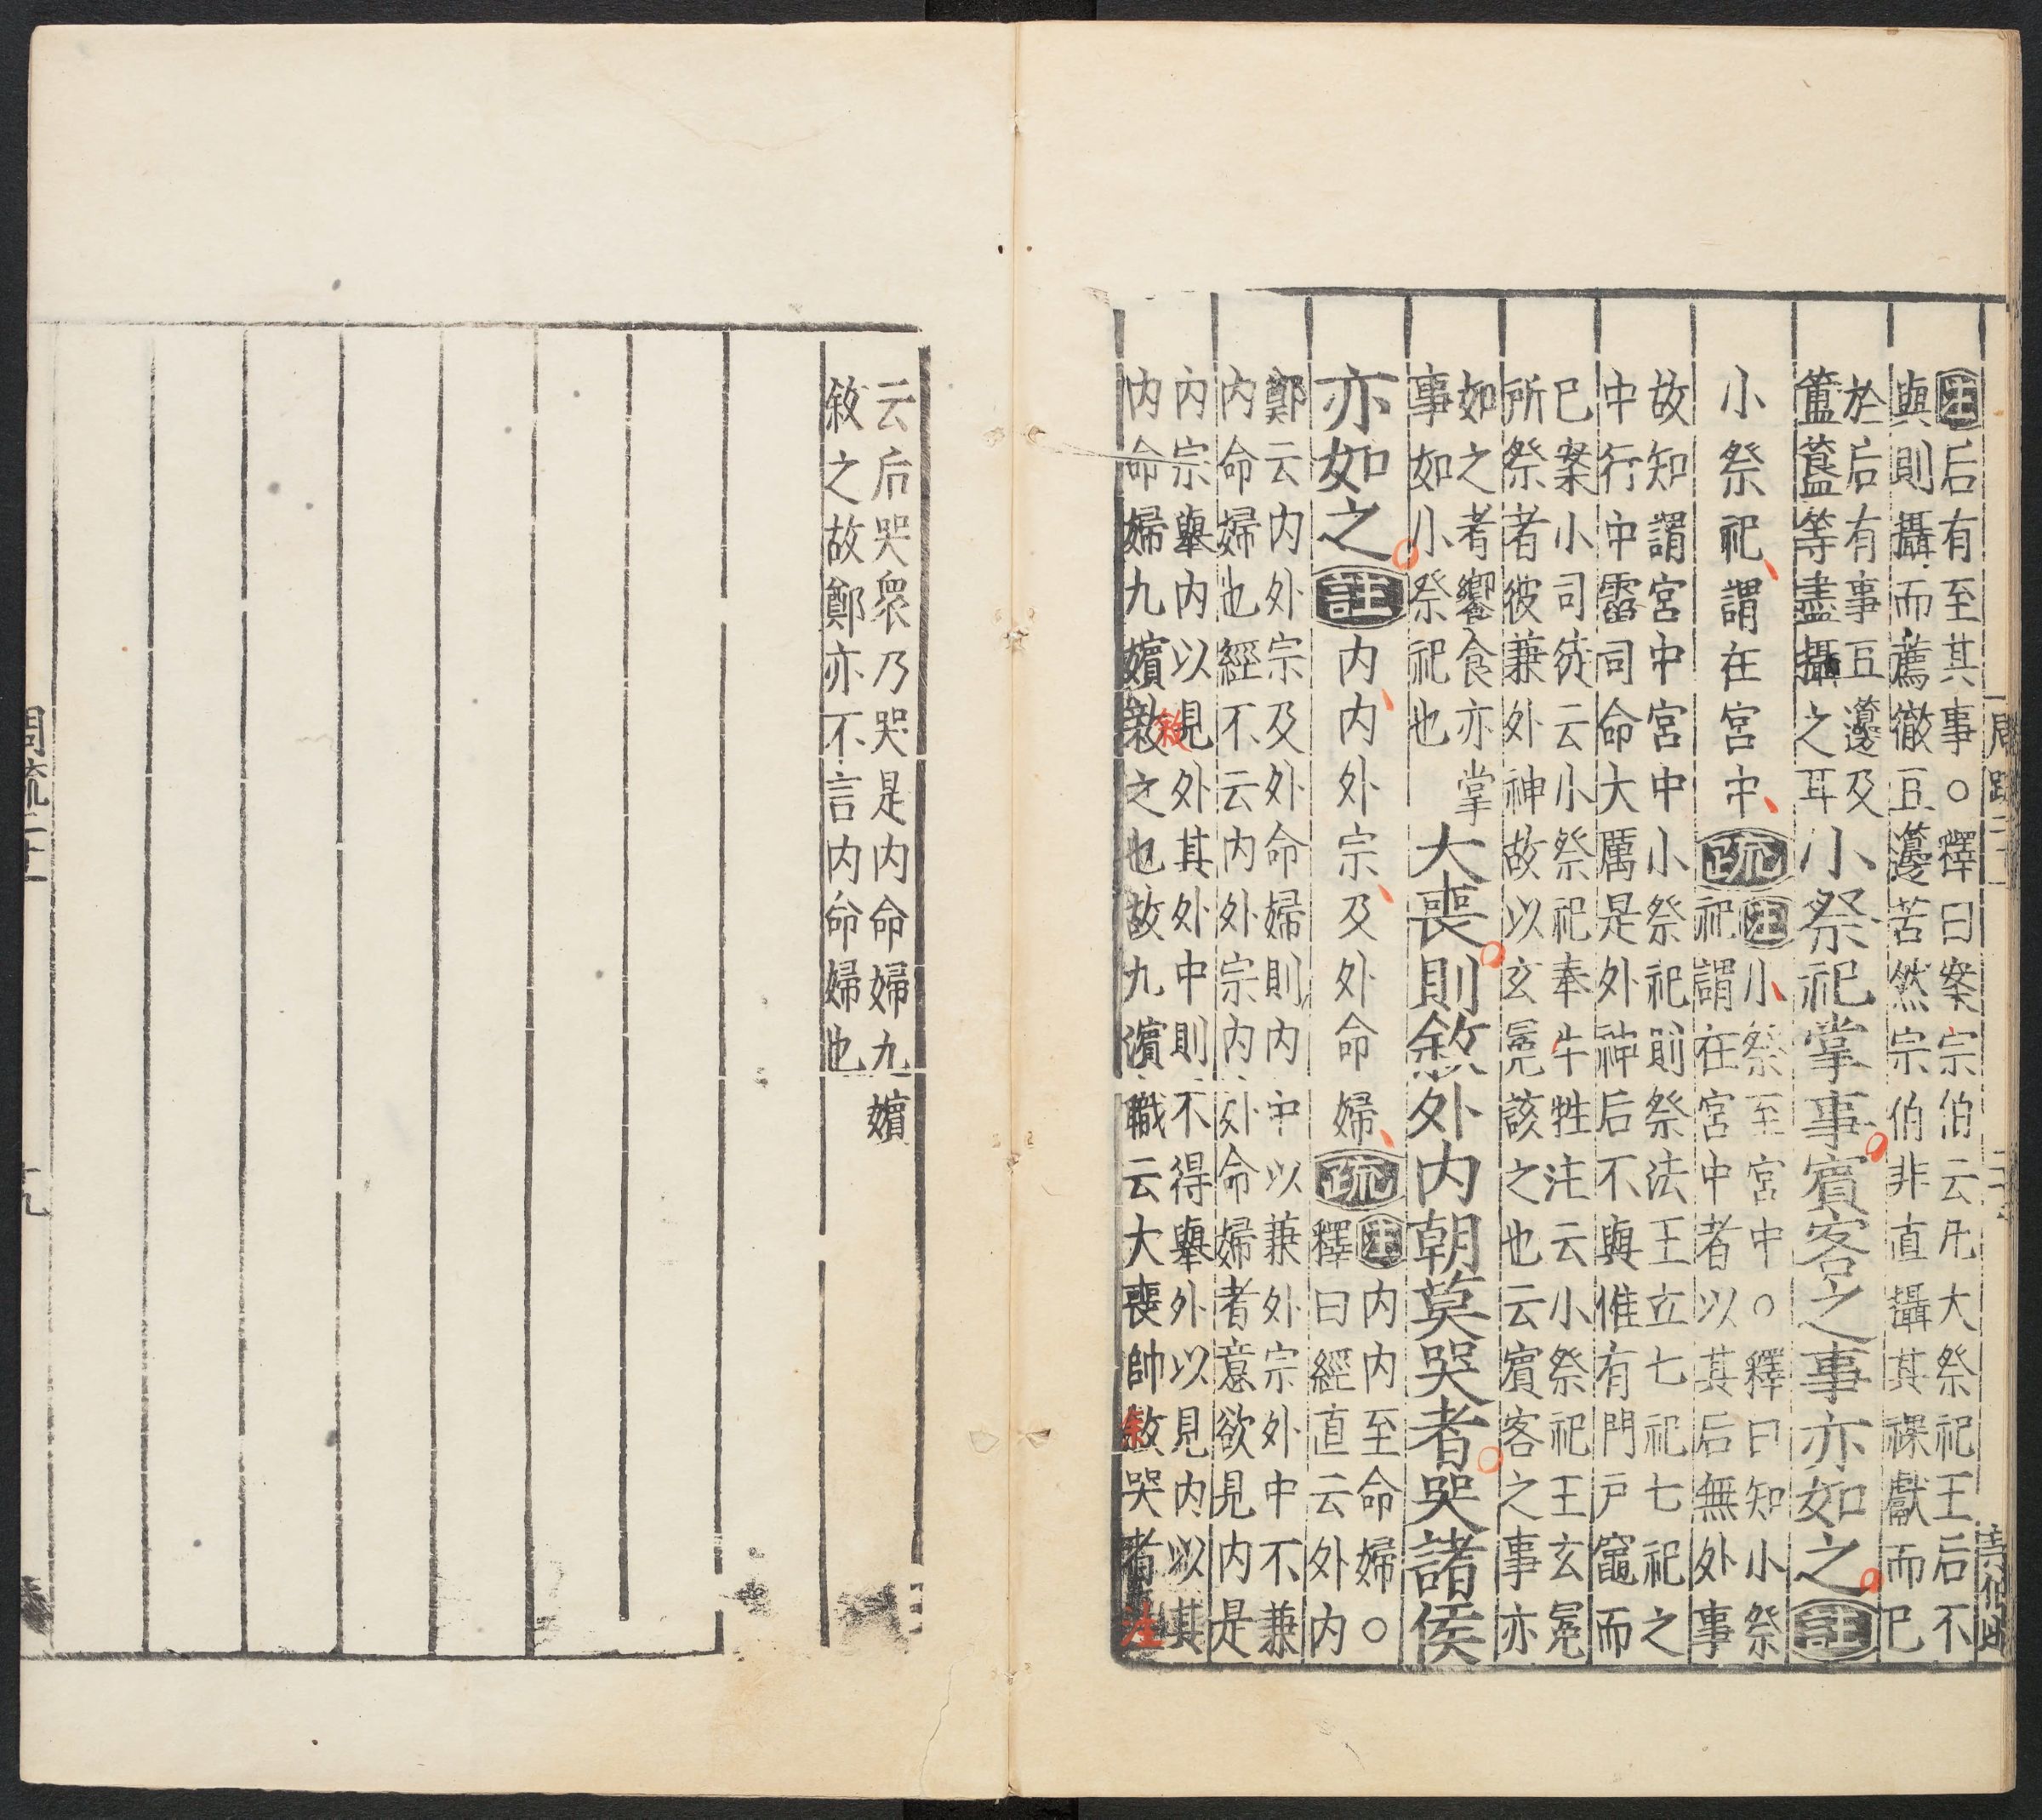 周疏二十一
注后有至其事○釋曰案宗伯云凡大祭祀王后不
與則攝而薦徹豆籩苦然宗伯非直攝其祼獻而巳
於后有事豆籩及
簠簋等盡攝之耳
小祭祀掌事賓客之事亦如之註
小祭祀謂在宮中疏
注小祭至宮中○釋曰知小祭
祀謂在宮中者以其后無外事
故知謂宮中宮中小祭祀則祭法王立七祀七祀之
中行中霤司命大厲是外神后不與惟有門戶竈而
巳案小司徒云小祭祀奉牛牲注云小祭祀王玄冕
所祭者彼兼外神故以玄冕該之也云賓客之事亦
如之者饗食亦掌
事如小祭祀也
大喪則敘外内朝莫哭者哭諸侯
亦如之註内内外宗及外命婦疏
注内内至命婦○
釋曰經直云外内
鄭云内外宗及外命婦則内中以兼外宗外中不兼
内命婦也經不云内外宗内外命婦者意欲見内是
内宗舉内以見外其外中則不得舉外以見内以其
内命婦九嬪敘之也故九濱職云大喪帥敘哭者注
敘
云后哭衆乃哭是内命婦九嬪
敘之故鄭亦不言内命婦也
周疏二十一
十九